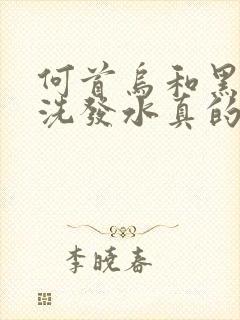 何首乌和黑
洗發水真的
李晓春